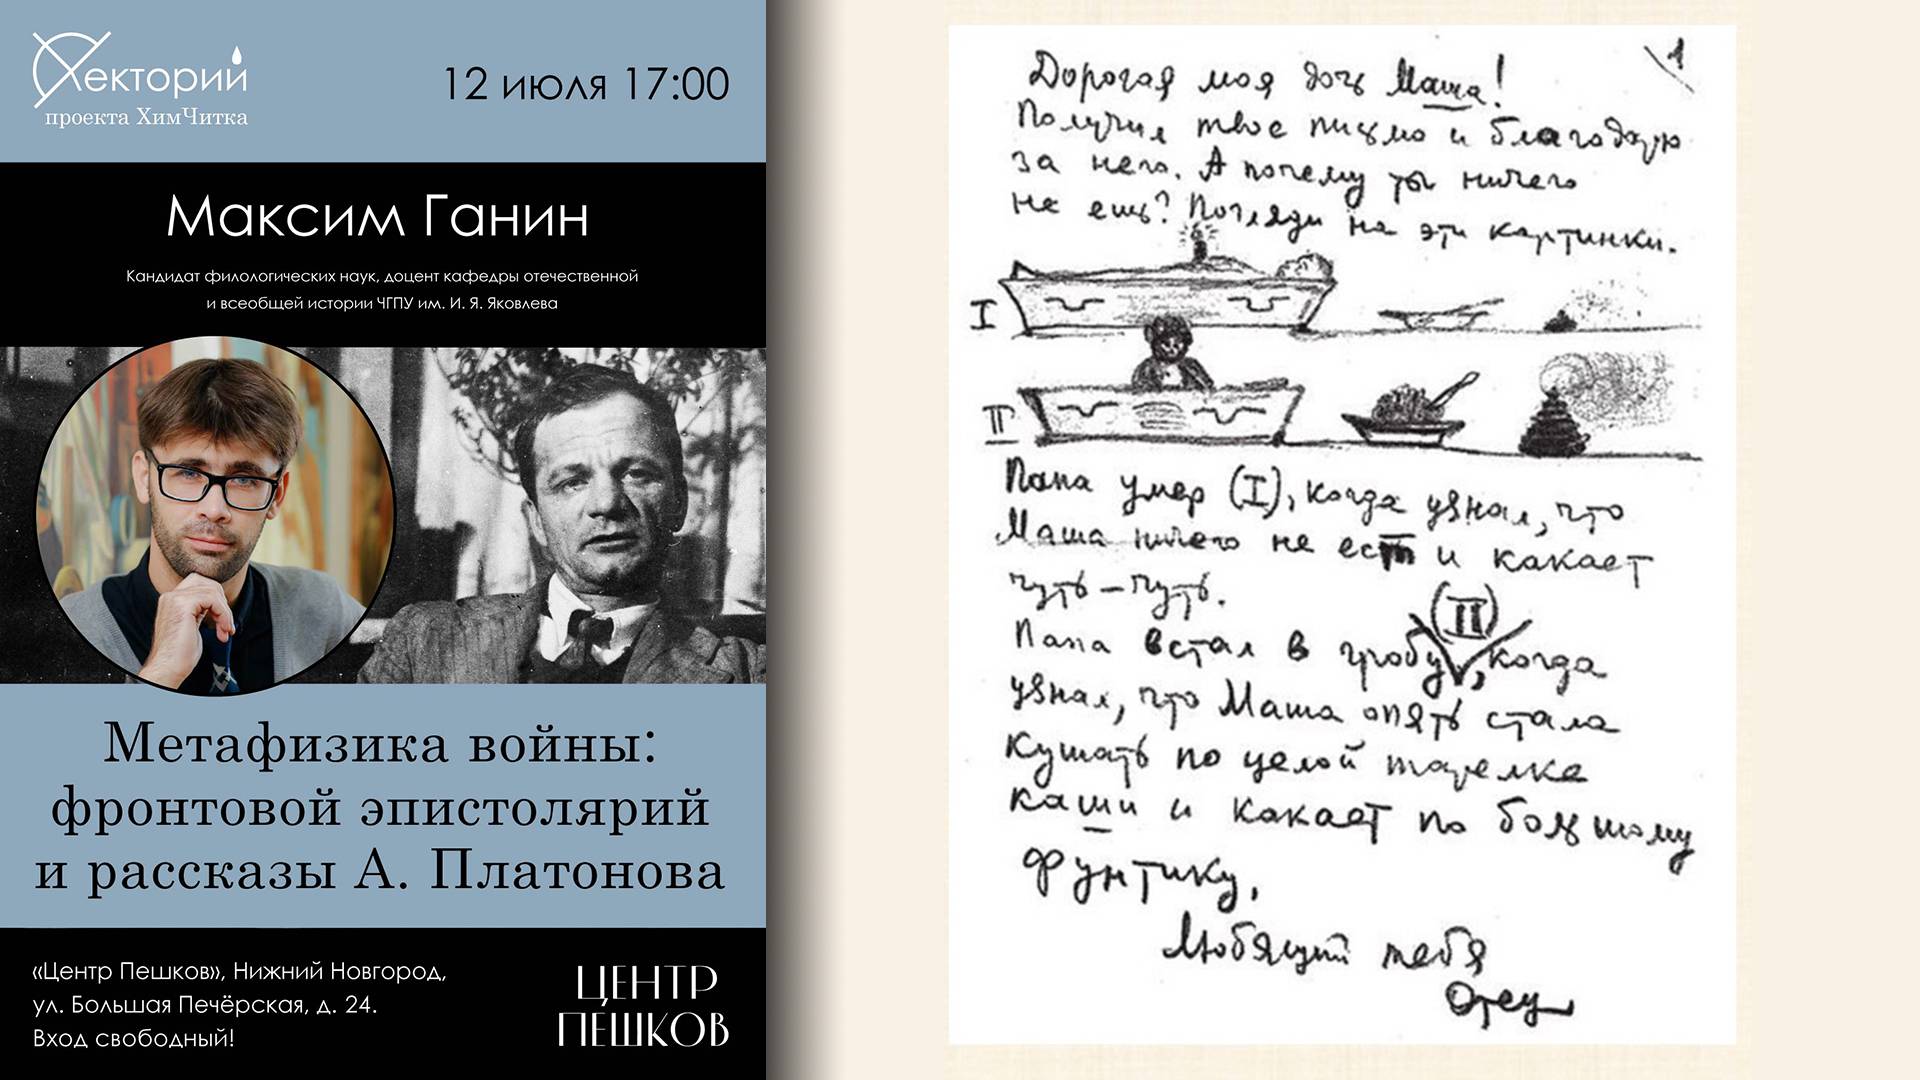 Лекторий
проекта ХимЧитка
12 июля 17:00
Максим Ганин
Кандидат филологических наук, доцент кафедры отечественной
и всеобщей истории ЧГПУ им. И. Я. Яковлева
Метафизика войны:
фронтовой эпистолярий
и рассказы А. Платонова
«Центр Пешков», Нижний Новгород,
ул. Большая Печёрская, д. 24.
Вход свободный!
ЦЕНТР
ПЕШКОВ
1
Дорогая моя дочь Маша!
Получил твое письмо и благодарю
за него. А почему ты ничего
не ешь? Погляди на эти картинки.
I
II
Папа умер (I), когда узнал, что
Маша ничего не ест и какает
чуть-чуть.
(II)
Папа встал в гробу, когда
узнал, что Маша опять стала
кушать по целой тарелке
каши и какает по большому
фунтику.
Любящий тебя
Отец